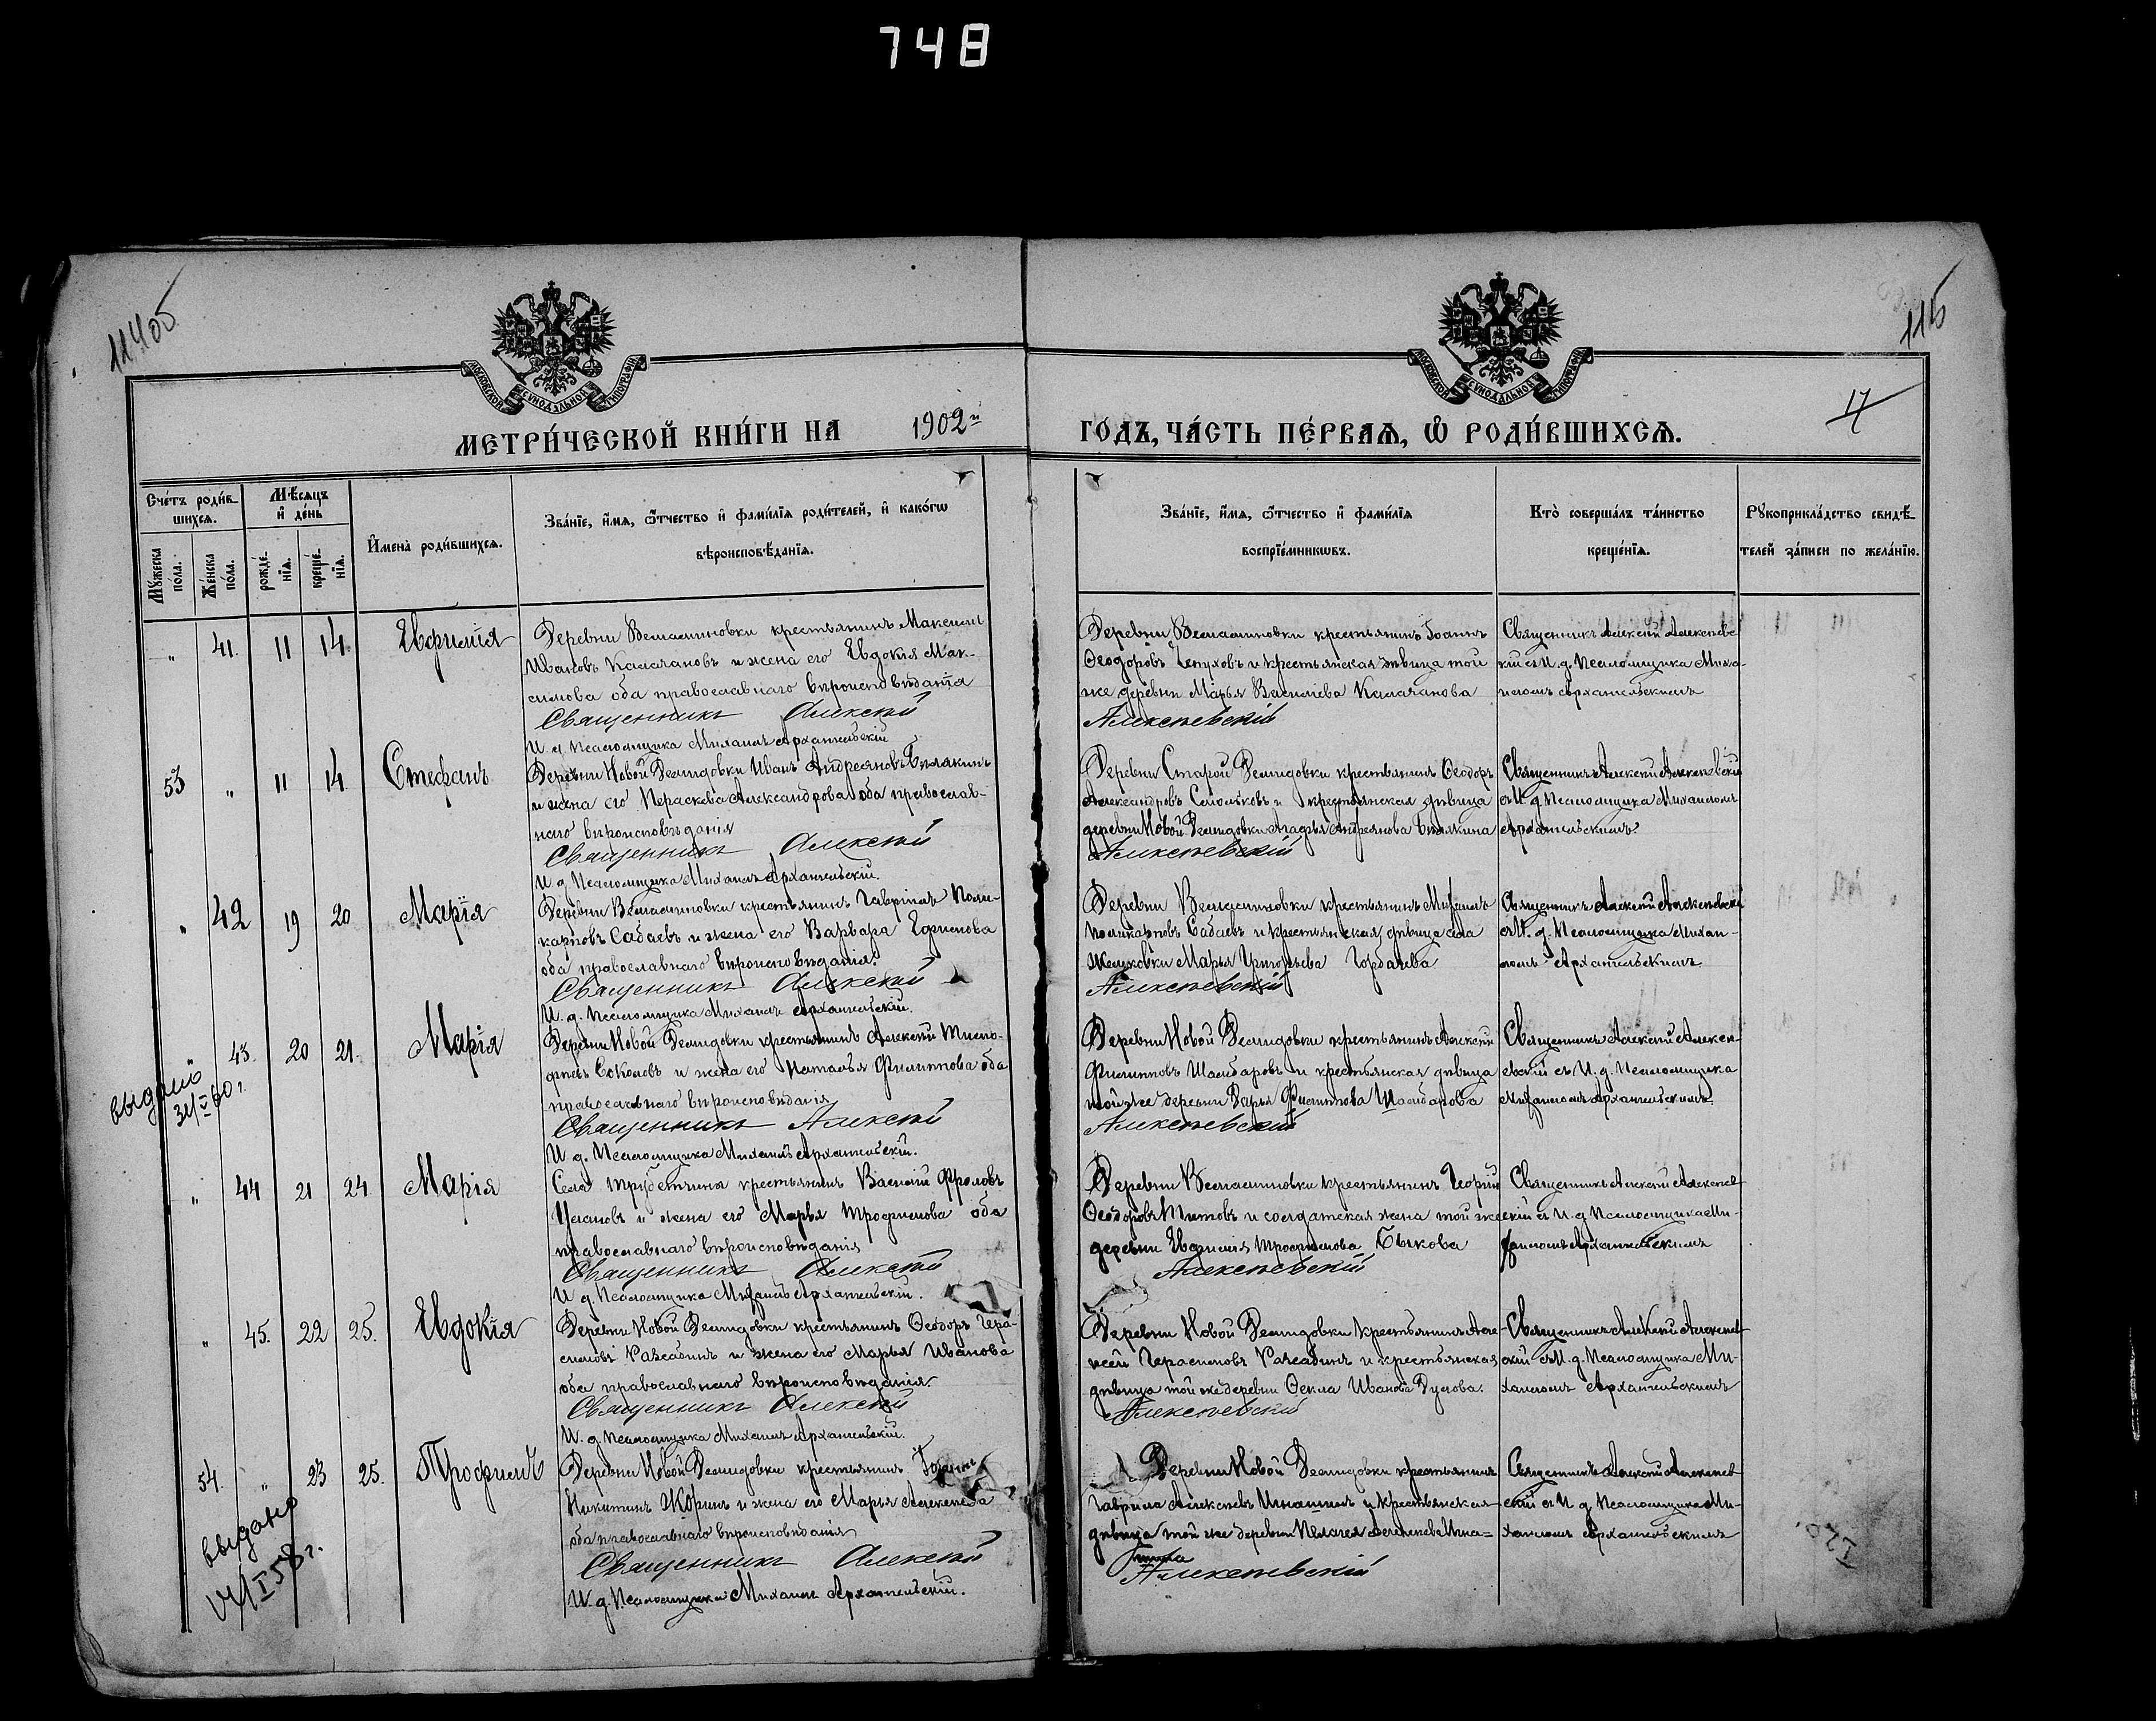 748
114об
115
17
МОСКОВСКОЙ СѴНОДАЛЬНОЙ ТИПОГРАФІИ
МОСКОВСКОЙ СѴНОДАЛЬНОЙ ТИПОГРАФІИ
МЕТРИ́ЧЕСКОЙ КНИ́ГИ НА 1902й ГО́ДЪ, ЧА́СТЬ ПЕ́РВАѦ, Ѽ РОДИ́ВШИХСѦ.
Сче́тъ роди́в-
шихсѧ.
Мѣ́сѧцъ
и҆ де́нь
Мꙋ́жеска по́ла.
Же́нска по́ла.
рожде́-
нїѧ.
креще́-
нїѧ.
И҆мена̀ роди́вшихсѧ.
Зва́нїе, и҆́мѧ, ѻ҆́тчество и҆ фами́лїѧ роди́телей, и҆ како́гѡ
вѣроисповѣ́данїѧ.
Зва́нїе, и҆́мѧ, ѻ҆́тчество и҆ фами́лїѧ
воспрїе́мникѡвъ.
Кто̀ соверша́лъ та́инство
креще́нїѧ.
Рꙋкоприкла́дство свидѣ́-
телей за́писи по жела́нїю.
„ 41. 11 14. Евфимія
Деревни крестьянинъ Максимъ
Ивановъ Калачановъ и жена его Евдокія Мак-
симова оба православнаго вѣроисповѣданія
Священникъ Алексѣй
И. д. Псаломщика Михаилъ Архангельскій
Деревни крестьянинъ Іоаннъ
Ѳеодоровъ и крестьянская дѣвица той
же деревни Марья Василіева Калачанова
Алексѣевскій
Священникъ Алексѣй Алексѣевс
кій съ И. д. Псаломщика Миха-
иломъ Архангельскимъ
53 „ 11 14 Стефанъ
Деревни Новой Демидовки Иванъ Андреяновъ
и жена его Параскева Александрова оба православ-
наго вѣроисповѣданія
Священникъ Алексѣй
И. д. Псаломщика Михаилъ Архангельскій.
Деревни Старой Демидовки крестьянинъ Ѳеодоръ
Александровъ и крестьянская дѣвица
деревни Новой Демидовки Агафья Андреянова
Алексѣевскій
Священникъ Алексѣй Алексѣевскій
съ И. д. Псаломщика Михаиломъ
Архангельскимъ.
„ 42 19 20 Марія
Деревни крестьянинъ Гавріилъ Поли-
карповъ Сабаевъ и жена его Варвара Ефимова
оба православнаго вѣроисповѣданія.
Священникъ Алексѣй
И. д. Псаломщика Михаилъ Архангельскій.
Деревни крестьянинъ Михаилъ
Поликарповъ Сабаевъ и крестьянская дѣвица села
Марья Григорьева Горбачева
Алексѣевскій
Священникъ Алексѣй Алексѣевскій
съ И. д. Псаломщика Михаи-
ломъ Архангельскимъ
„ 43. 20 21. Марія
выдано
31/I 60 г.
Деревни Новой Демидовки крестьянинъ Алексѣй Тимо-
феевъ Соколовъ и жена его Наталья Филиппова оба
православнаго вѣроисповѣданія
Священникъ Алексѣй
И. д. Псаломщика Михаилъ Архангельскій.
Деревни Новой Демидовки крестьянинъ Алексѣй
Филипповъ Шамбаровъ и крестьянская дѣвица
той же деревни Дарья Филиппова Шамбарова
Алексѣевскій
Священникъ Алексѣй Алексѣ-
евскій съ И. д. Псаломщика
Михаиломъ Архангельскимъ.
„ 44 21 24 Марія
Села Трубетчина крестьянинъ Василій Фроловъ
и жена его Марья Трофимова оба
православнаго вѣроисповѣданія
Священникъ Алексѣй
И. д. Псаломщика Михаилъ Архангельскій.
Деревни крестьянинъ Георгій
Ѳеодоровъ Титовъ и солдатская жена той же
деревни Евфимія Трофимова Быкова
Алексѣевскій
Священникъ Алексѣй Алексѣев-
скій съ И. д. Псаломщика Ми-
хаиломъ Архангельскимъ
„ 45. 22 25. Евдокія
Деревни Новой Демидовки крестьянинъ Ѳеодоръ Гера-
симовъ и жена его Марья Иванова
оба православнаго вѣроисповѣданія.
Священникъ Алексѣй
И. д. Псаломщика Михаилъ Архангельскій.
Деревни Новой Демидовки крестьянинъ Але-
ксѣй Герасимовъ и крестьянская
дѣвица той же деревни Ѳекла Иванова
Алексѣевскій
Священникъ Алексѣй Алексѣев-
скій съ И. д. Псаломщика Ми-
хаиломъ Архангельскимъ
54. „ 23 25. Трофимъ
выдано
I 58 г.
Деревни Новой Демидовки крестьянинъ Іоаннъ
Никитинъ Жоринъ и жена его Марья Алексѣева
оба православнаго вѣроисповѣданія
Священникъ Алексѣй
И. д. Псаломщика Михаилъ Архангельскій.
Деревни Новой Демидовки крестьянинъ
Гаврила Алексѣевъ Игнашинъ и крестьянская
дѣвица той же деревни Пелагея Алексѣева Игна-
шина
Алексѣевскій
Священникъ Алексѣй Алексѣев-
скій съ И. д. Псаломщика Ми-
хаиломъ Архангельскимъ